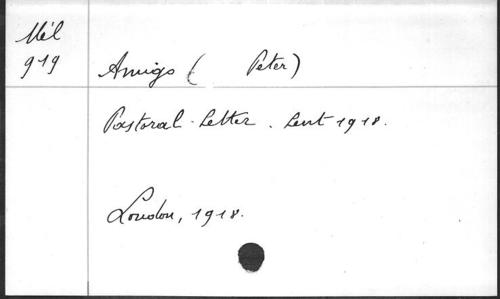 Mél
919
Amigo ( Peter)
Pastoral Letter. Lent 1918.
London, 1918.